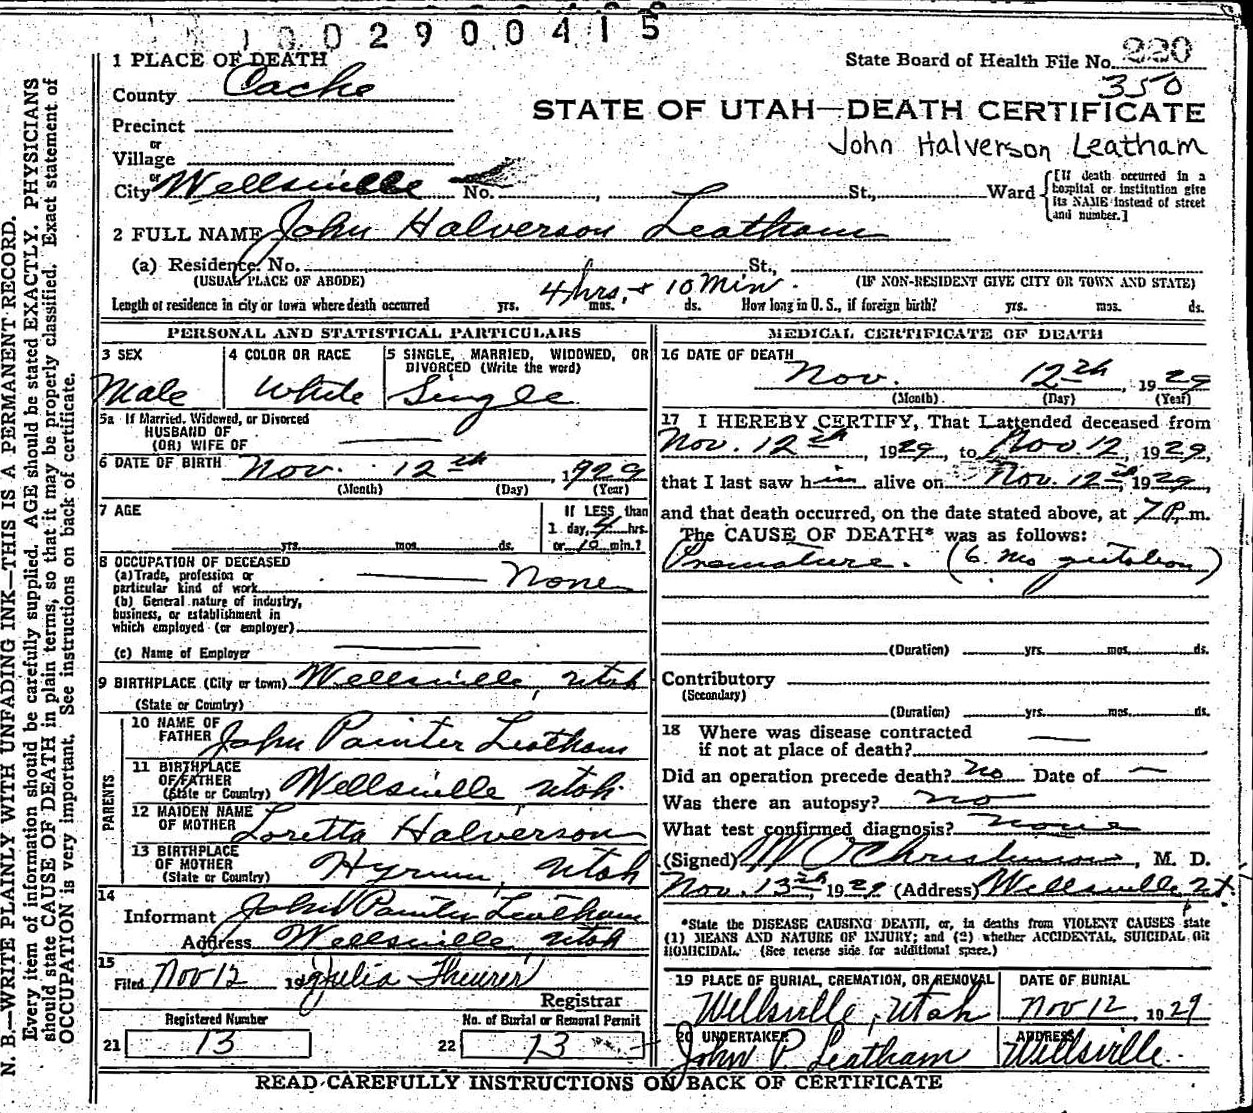 0 0 2 9 0 0 4 1 5
1 PLACE OF DEATH
County Cache
Precinct
or
Village
or
City Wellsville No. , St., Ward
State Board of Health File No. 220
350
STATE OF UTAH—DEATH CERTIFICATE
John Halverson Leatham
[If death occurred in a
hospital or institution give
its NAME instead of street
and number.]
2 FULL NAME John Halverson Leatham
(a) Residence. No. St.,
(USUAL PLACE OF ABODE) (IF NON-RESIDENT GIVE CITY OR TOWN AND STATE)
4 hrs, & 10 Min.
Length of residence in city or town where death occurred yrs. mos. ds. How long in U. S., if foreign birth? yrs. mos. ds.
PERSONAL AND STATISTICAL PARTICULARS
3 SEX
Male
4 COLOR OR RACE
White
5 SINGLE, MARRIED, WIDOWED, OR
DIVORCED (Write the word)
Single
5a If Married, Widowed, or Divorced
HUSBAND OF
(OR) WIFE OF
6 DATE OF BIRTH Nov. 12th, 1929
(Month) (Day) (Year)
7 AGE
yrs. mos. ds.
If LESS than
1 day, 4 hrs.
or 10 min.?
8 OCCUPATION OF DECEASED
(a) Trade, profession or
particular kind of work None
(b) General nature of industry,
business, or establishment in
which employed (or employer)
(c) Name of Employer
9 BIRTHPLACE (City or town) Wellsville, Utah
(State or Country)
PARENTS
10 NAME OF
FATHER John Painter Leatham
11 BIRTHPLACE
OF FATHER
(State or Country) Wellsville, Utah.
12 MAIDEN NAME
OF MOTHER Loretta Halverson
13 BIRTHPLACE
OF MOTHER
(State or Country) Hyrum, Utah
14
Informant John Painter Leatham
Address Wellsville, Utah
15
Filed Nov 12 19 Julia Theurer
Registrar
Registered Number
21 13
No. of Burial or Removal Permit
22 13
MEDICAL CERTIFICATE OF DEATH
16 DATE OF DEATH
Nov. 12th, 1929
(Month) (Day) (Year)
17 I HEREBY CERTIFY, That I attended deceased from
Nov. 12th, 1929, to Nov 12, 1929,
that I last saw him alive on Nov. 12th, 1929,
and that death occurred, on the date stated above, at 7 P. m.
The CAUSE OF DEATH* was as follows:
Premature. (6. mo
(Duration) yrs. mos. ds.
Contributory
(Secondary)
(Duration) yrs. mos. ds.
18 Where was disease contracted
if not at place of death?
Did an operation precede death? no Date of —
Was there an autopsy? no
What test confirmed diagnosis? none
(Signed) Christensen, M. D.
Nov. 13th 1929 (Address) Wellsville Ut.
*State the DISEASE CAUSING DEATH, or, in deaths from VIOLENT CAUSES state
(1) MEANS AND NATURE OF INJURY; and (2) whether ACCIDENTAL, SUICIDAL OR
HOMICIDAL. (See reverse side for additional space.)
19 PLACE OF BURIAL, CREMATION, OR REMOVAL
Wellsville, Utah
DATE OF BURIAL
Nov 12, 1929
20 UNDERTAKER
John P. Leatham
ADDRESS
Wellsville.
READ CAREFULLY INSTRUCTIONS ON BACK OF CERTIFICATE
N. B.—WRITE PLAINLY WITH UNFADING INK—THIS IS A PERMANENT RECORD.
Every item of information should be carefully supplied. AGE should be stated EXACTLY. PHYSICIANS
should state CAUSE OF DEATH in plain terms, so that it may be properly classified. Exact statement of
OCCUPATION is very important. See instructions on back of certificate.